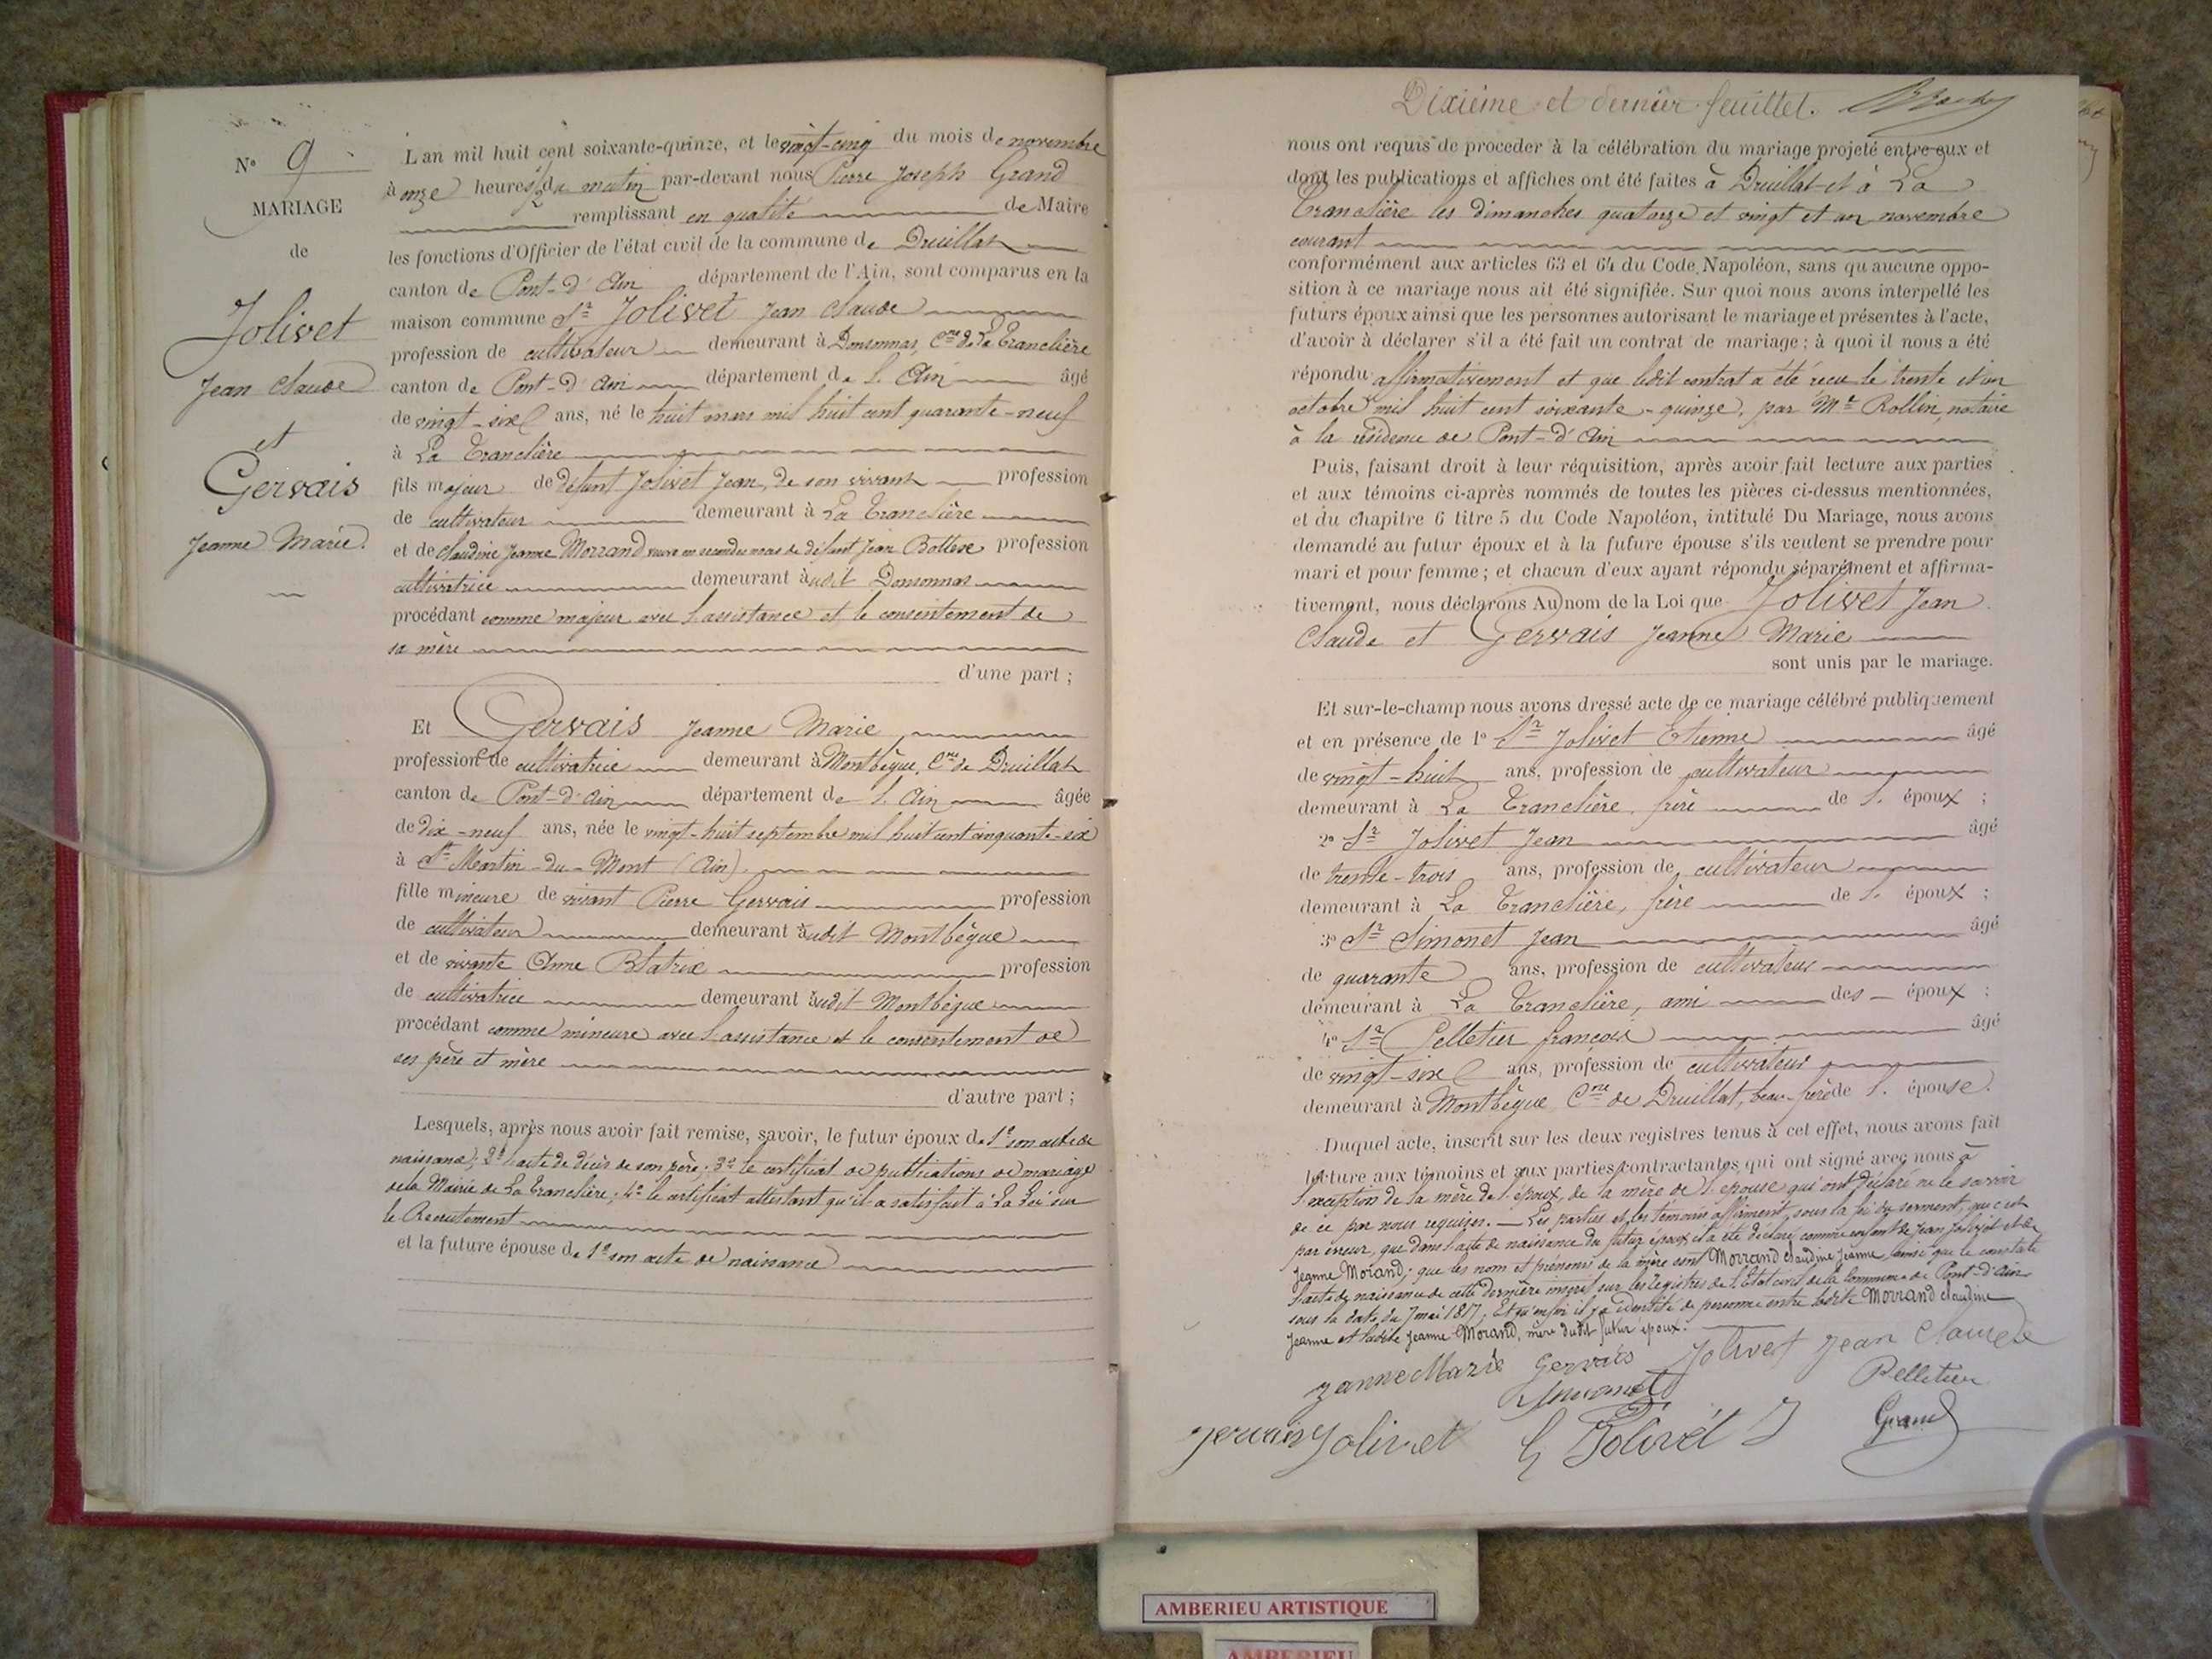 N° 9
MARIAGE
de
Jolivet
Jean Claude
et
Gervais
Jeanne Marie
L'an mil huit cent soixante-quinze, et le vingt-cinq du mois de novembre
à onze heures 1/2 du matin par-devant nous Pierre Joseph Grand
remplissant en qualité de Maire
les fonctions d'Officier de l'état civil de la commune de Druillat
canton de Pont-d'Ain département de l'Ain, sont comparus en la
maison commune Sr Jolivet Jean Claude
profession de cultivateur demeurant à Donsonnas, Cne de La Tranclière
canton de Pont-d'Ain département de l'Ain âgé
de vingt-six ans, né le huit mars mil huit cent quarante-neuf
à La Tranclière
fils majeur de défunt Jolivet Jean, de son vivant profession
de cultivateur demeurant à La Tranclière
et de Claudine Jeanne Morrand veuve en secondes noces de défunt Jean Bollere profession
cultivatrice demeurant audit Donsonnas
procédant comme majeur avec l'assistance et le consentement de
sa mère
d'une part ;
Et Gervais Jeanne Marie
profession de cultivatrice demeurant à Montbègue, Cne de Druillat
canton de Pont-d'Ain département de l'Ain âgée
de dix-neuf ans, née le vingt-huit septembre mil huit cent cinquante-six
à St Martin-du-Mont (Ain).
fille mineure de vivant Pierre Gervais profession
de cultivateur demeurant audit Montbègue
et de vivante Anne Blatrix profession
de cultivatrice demeurant audit Montbègue
procédant comme mineure avec l'assistance et le consentement de
ses père et mère
d'autre part ;
Lesquels, après nous avoir fait remise, savoir, le futur époux de 1° son acte de
naissance; 2° l'acte de décès de son père; 3° le certificat de publications de mariage
de la Mairie de La Tranclière; 4° le certificat attestant qu'il a satisfait à La Loi sur
le Recrutement
et la future épouse de 1° son acte de naissance
Dixième et dernier feuillet.
nous ont requis de procéder à la célébration du mariage projeté entre eux et
dont les publications et affiches ont été faites à Druillat et à La
Tranclière les dimanches quatorze et vingt et un novembre
courant
conformément aux articles 63 et 64 du Code Napoléon, sans qu'aucune oppo-
sition à ce mariage nous ait été signifiée. Sur quoi nous avons interpellé les
futurs époux ainsi que les personnes autorisant le mariage et présentes à l'acte,
d'avoir à déclarer s'il a été fait un contrat de mariage ; à quoi il nous a été
répondu affirmativement et que ledit contrat a été reçu le trente et un
octobre mil huit cent soixante-quinze, par Me Rollin, notaire
à la résidence de Pont-d'Ain
Puis, faisant droit à leur réquisition, après avoir fait lecture aux parties
et aux témoins ci-après nommés de toutes les pièces ci-dessus mentionnées,
et du chapitre 6 titre 5 du Code Napoléon, intitulé Du Mariage, nous avons
demandé au futur époux et à la future épouse s'ils veulent se prendre pour
mari et pour femme ; et chacun d'eux ayant répondu séparément et affirma-
tivement, nous déclarons Au nom de la Loi que Jolivet Jean
Claude et Gervais Jeanne Marie
sont unis par le mariage.
Et sur-le-champ nous avons dressé acte de ce mariage célébré publiquement
et en présence de 1° Sr Jolivet Etienne âgé
de vingt-huit ans, profession de cultivateur
demeurant à La Tranclière, frère de l' époux ;
2° Sr Jolivet Jean âgé
de trente-trois ans, profession de cultivateur
demeurant à La Tranclière, frère de l' époux ;
3° Sr Simonet Jean âgé
de quarante ans, profession de cultivateur
demeurant à La Tranclière, ami des époux ;
4° Sr Pelletier françois âgé
de vingt-six ans, profession de cultivateur
demeurant à Montbègue, Cne de Druillat, beau-frère de l' épouse.
Duquel acte, inscrit sur les deux registres tenus à cet effet, nous avons fait
lecture aux témoins et aux parties contractantes qui ont signé avec nous à
l'exception de la mère de l'époux, de la mère de l'épouse qui ont déclaré ne le savoir
de ce par nous requises. — Les parties et les témoins affirment, sous la foi du serment, que c'est
par erreur, que dans l'acte de naissance du futur époux il a été déclaré comme enfant de Jean Jolivet et de
Jeanne Morand; que les nom et prénoms de la mère sont Morrand Claudine Jeanne, ainsi que le constate
l'acte de naissance de cette dernière inscrit sur les registres de l'Etat civil de la Commune de Pont-d'Ain
sous la date du 7 mai 1817, Et qu'enfin il y a identité de personne entre ladite Morrand Claudine
Jeanne et ladite Jeanne Morand, mère dudit futur époux.
Janne Marie Gervais Jolivet Jean Claude
Simonet Pelletier
gervais Jolivet Jolivét J Grand
AMBERIEU ARTISTIQUE
AMBERIEU